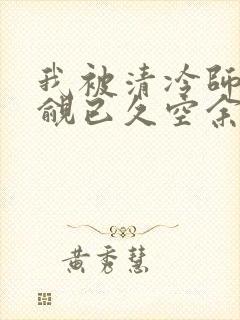 我被清冷師
覦已久空余
黃秀慧